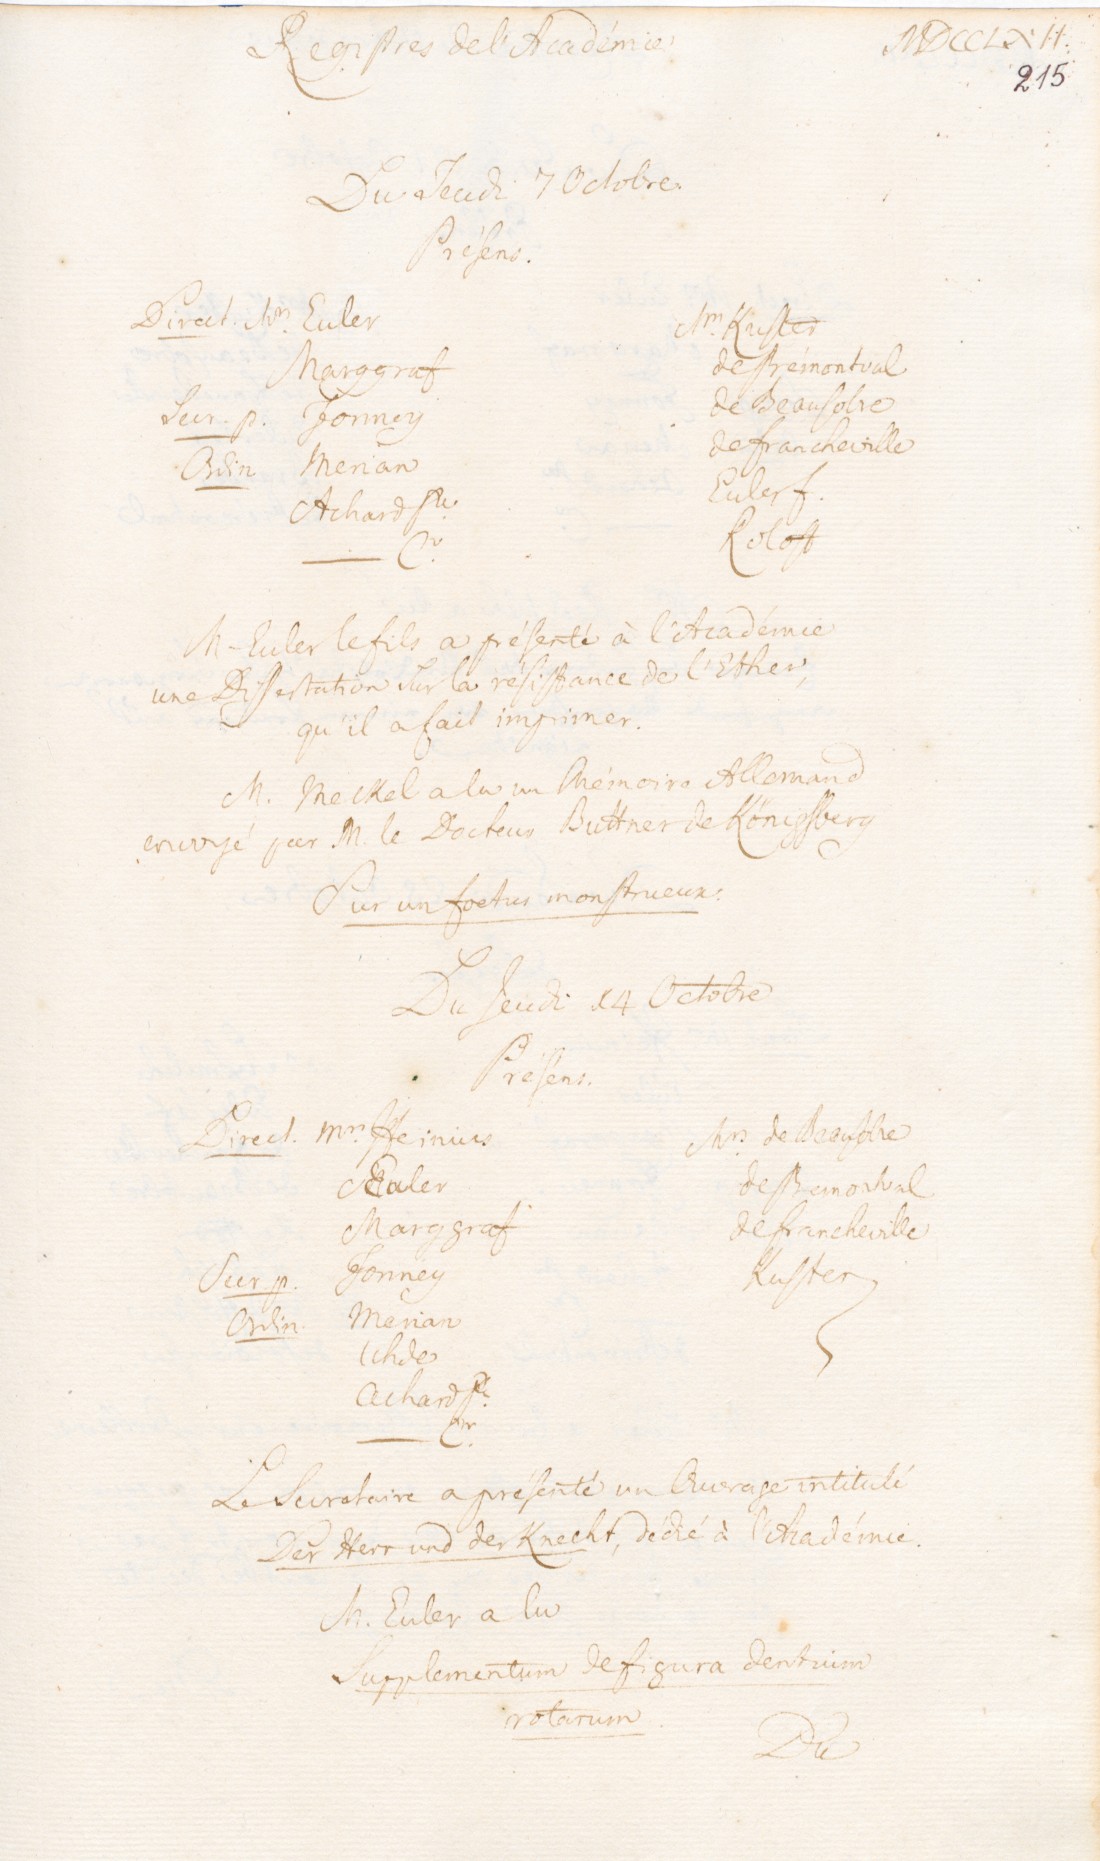 Registres de l'Académie. MDCCLXII.
215
Du Jeudi 7 Octobre.
Présens.
Direct. Mrs. Euler
Marggraf
Secr. p. Formey
Ordin Merian
Achard Pr.
——— Cr.
Mrs. Kuster
de Prémontval
de Beausobre
de Francheville
Euler f.
Roloff
M. Euler le fils a présenté à l'Académie
une Dissertation sur la résistance de l'Ether,
qu'il a fait imprimer.
M. Meckel a lu un Mémoire Allemand
envoyé par M. le Docteur Büttner de Königsberg
Sur un foetus monstrueux.
Du Jeudi 14 Octobre
Présens.
Direct. Mrs. Heinius
Euler
Marggraf
Secr. p. Formey
Ordin. Merian
Uhde
Achard Pr.
——— Cr.
Mrs. de Beausobre
de Premontval
de Francheville
Kuster
Le Secretaire a présenté un Ouvrage intitulé
Der Herr und der Knecht, dédié à l'Académie.
M. Euler a lu
Supplementum de figura dentium
rotarum.
Du